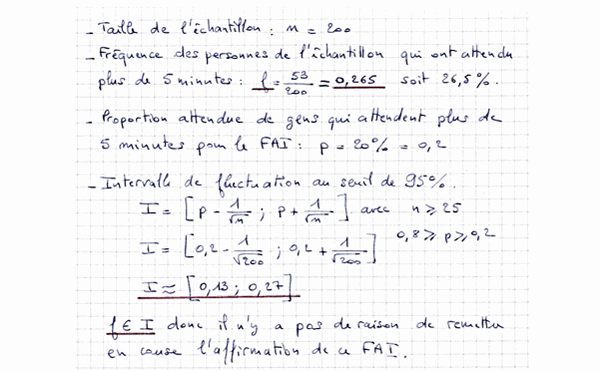 - Taille de l'échantillon : n = 200
- Fréquence des personnes de l'échantillon qui ont attendu
plus de 5 minutes : f = 53/200 = 0,265 soit 26,5%.
- Proportion attendue de gens qui attendent plus de
5 minutes pour le FAI : p = 20% = 0,2
- Intervalle de fluctuation au seuil de 95%.
I = [p - 1/√n ; p + 1/√n] avec n ⩾ 25
0,8 ⩾ p ⩾ 0,2
I = [0,2 - 1/√200 ; 0,2 + 1/√200]
I ≈ [0,13 ; 0,27]
f ∈ I donc il n'y a pas de raison de remettre
en cause l'affirmation de ce FAI.